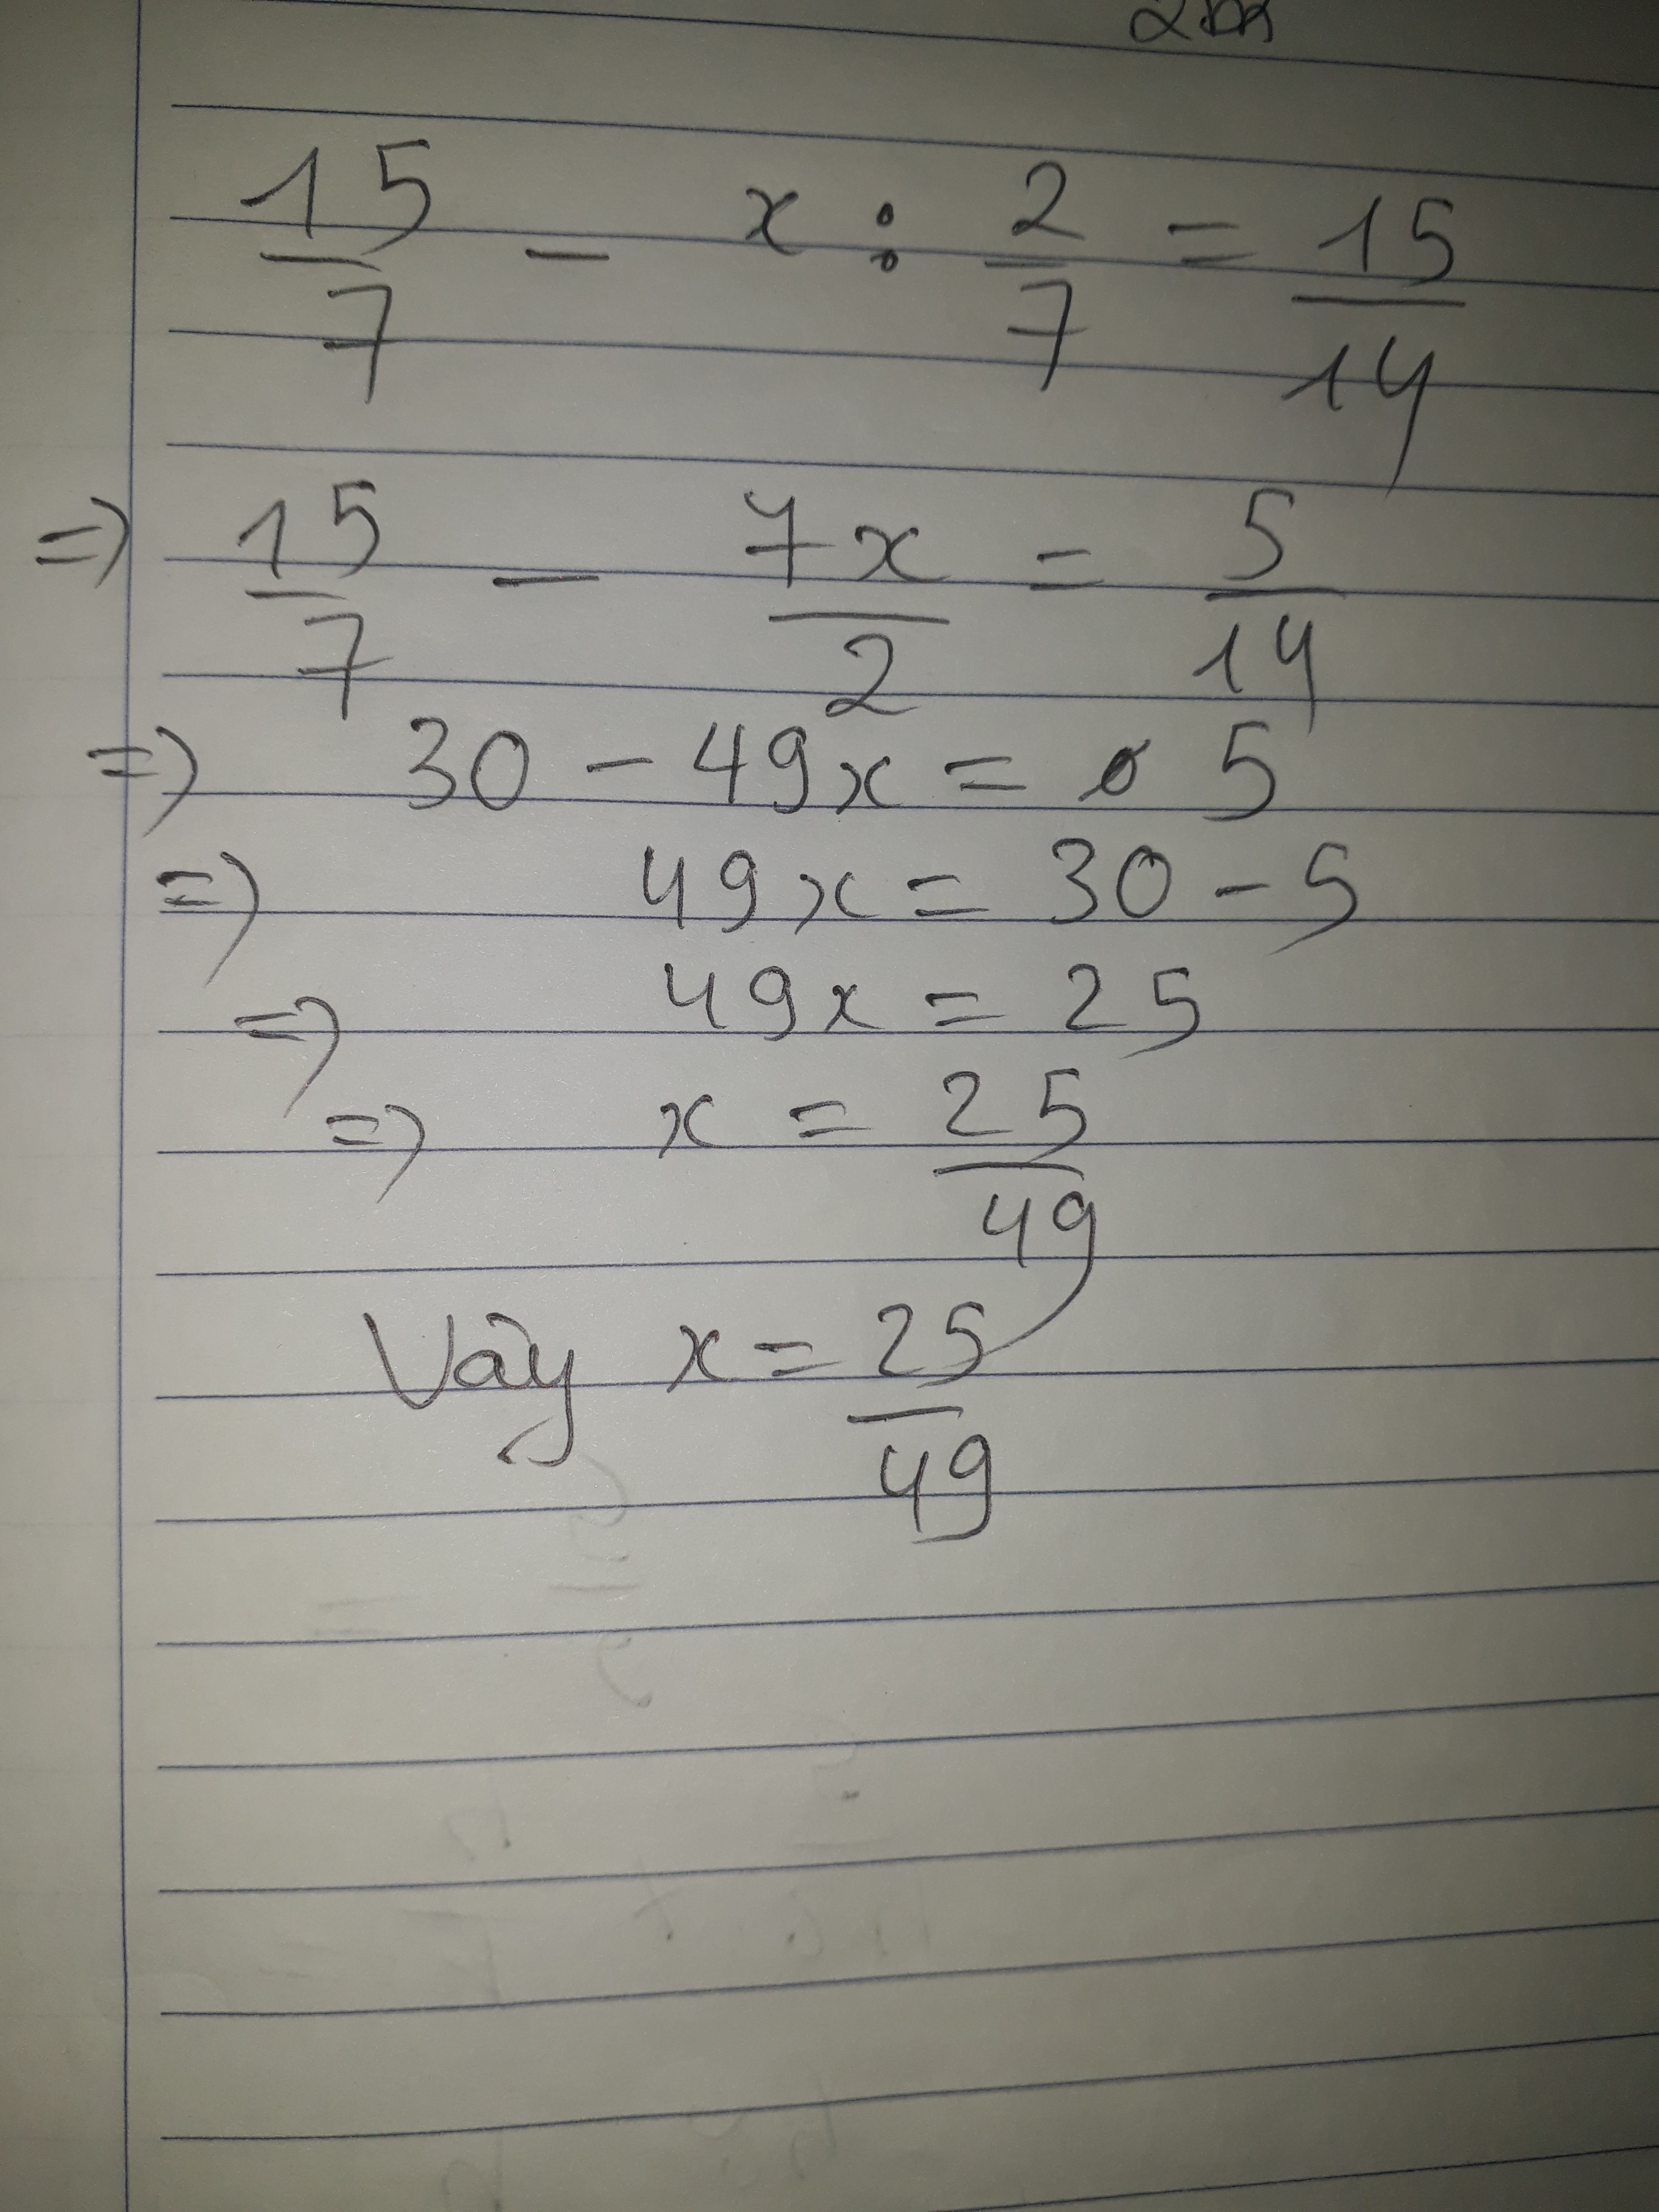 15/7 - x : 2/7 = 15/14
=> 15/7 - 7x/2 = 5/14
=> 30 - 49x = 5
=> 49x = 30 - 5
=> 49x = 25
=> x = 25/49
Vậy x = 25/49